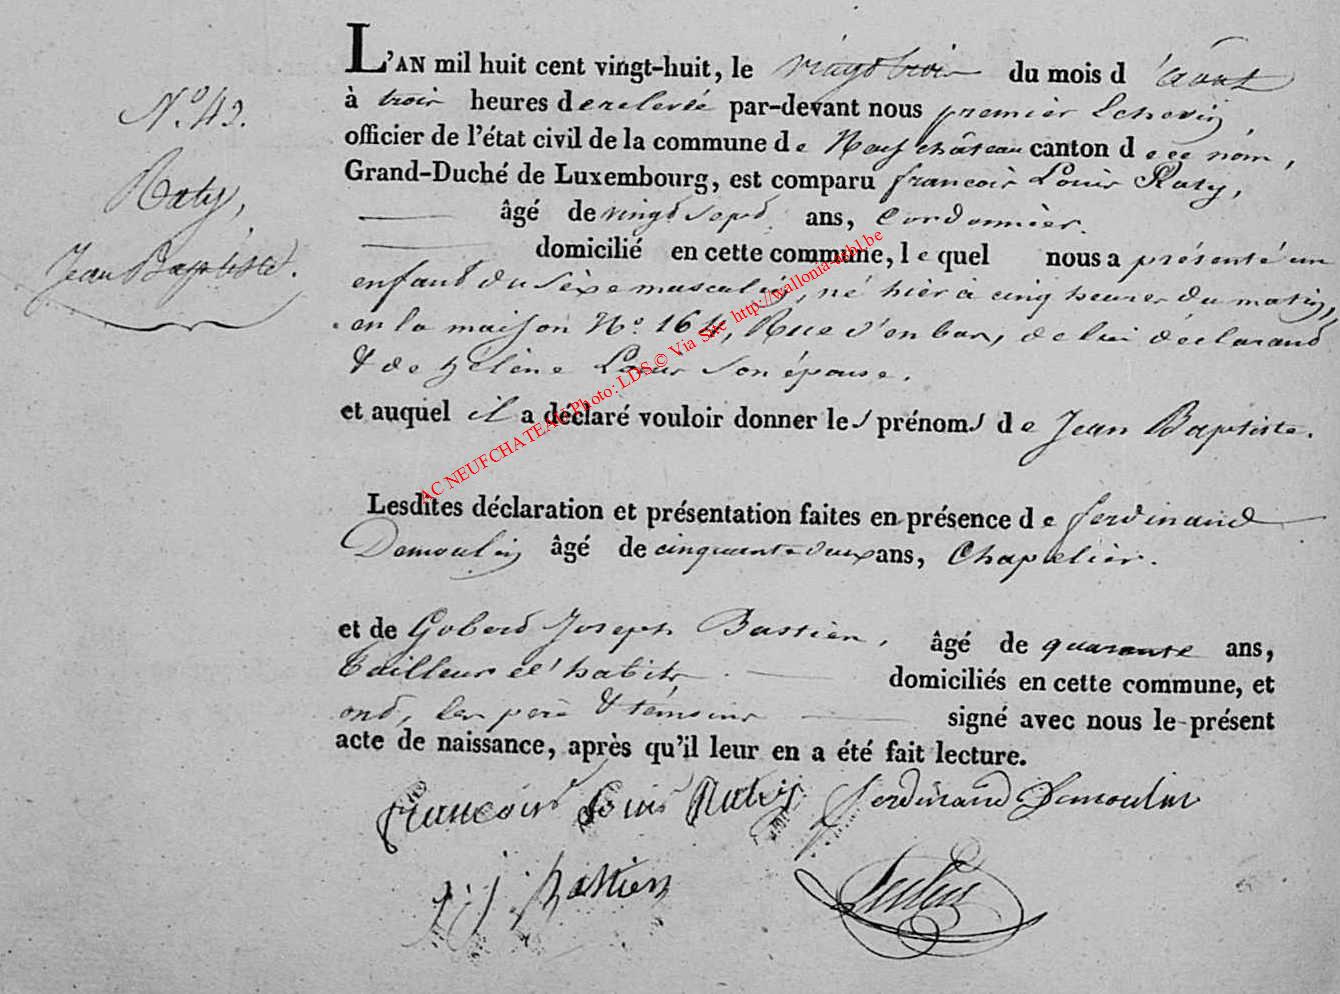 L'AN mil huit cent vingt-huit, le vingt trois du mois d'août
N.° 42.
à trois heures de relevée par-devant nous premier Echevin,
officier de l'état civil de la commune de Neufchâteau canton de ce nom,
Raty,
Grand-Duché de Luxembourg, est comparu françois Louis Raty,
âgé de vingt sept ans, Cordonnier.
Jean Baptiste.
domicilié en cette commune, lequel nous a présenté un
enfant du sèxe masculin, né hier à cinq heures du matin,
en la maison N° 164, Rue d'en bas, de lui déclarant
& de hélène Louis son épouse.
et auquel il a déclaré vouloir donner les prénoms de Jean Baptiste.
Lesdites déclaration et présentation faites en présence de ferdinand
Demoulin âgé de cinquante deux ans, Chapelier.
et de Gobert Joseph Bastien, âgé de quarante ans,
tailleur d'habits domiciliés en cette commune, et
ont, les père & témoins signé avec nous le présent
acte de naissance, après qu'il leur en a été fait lecture.
françois Louis Raty ferdinand Demoulin
Bastien
AC NEUFCHATEAU Photo: LDS © Via Site http://wallonia-asbl.be